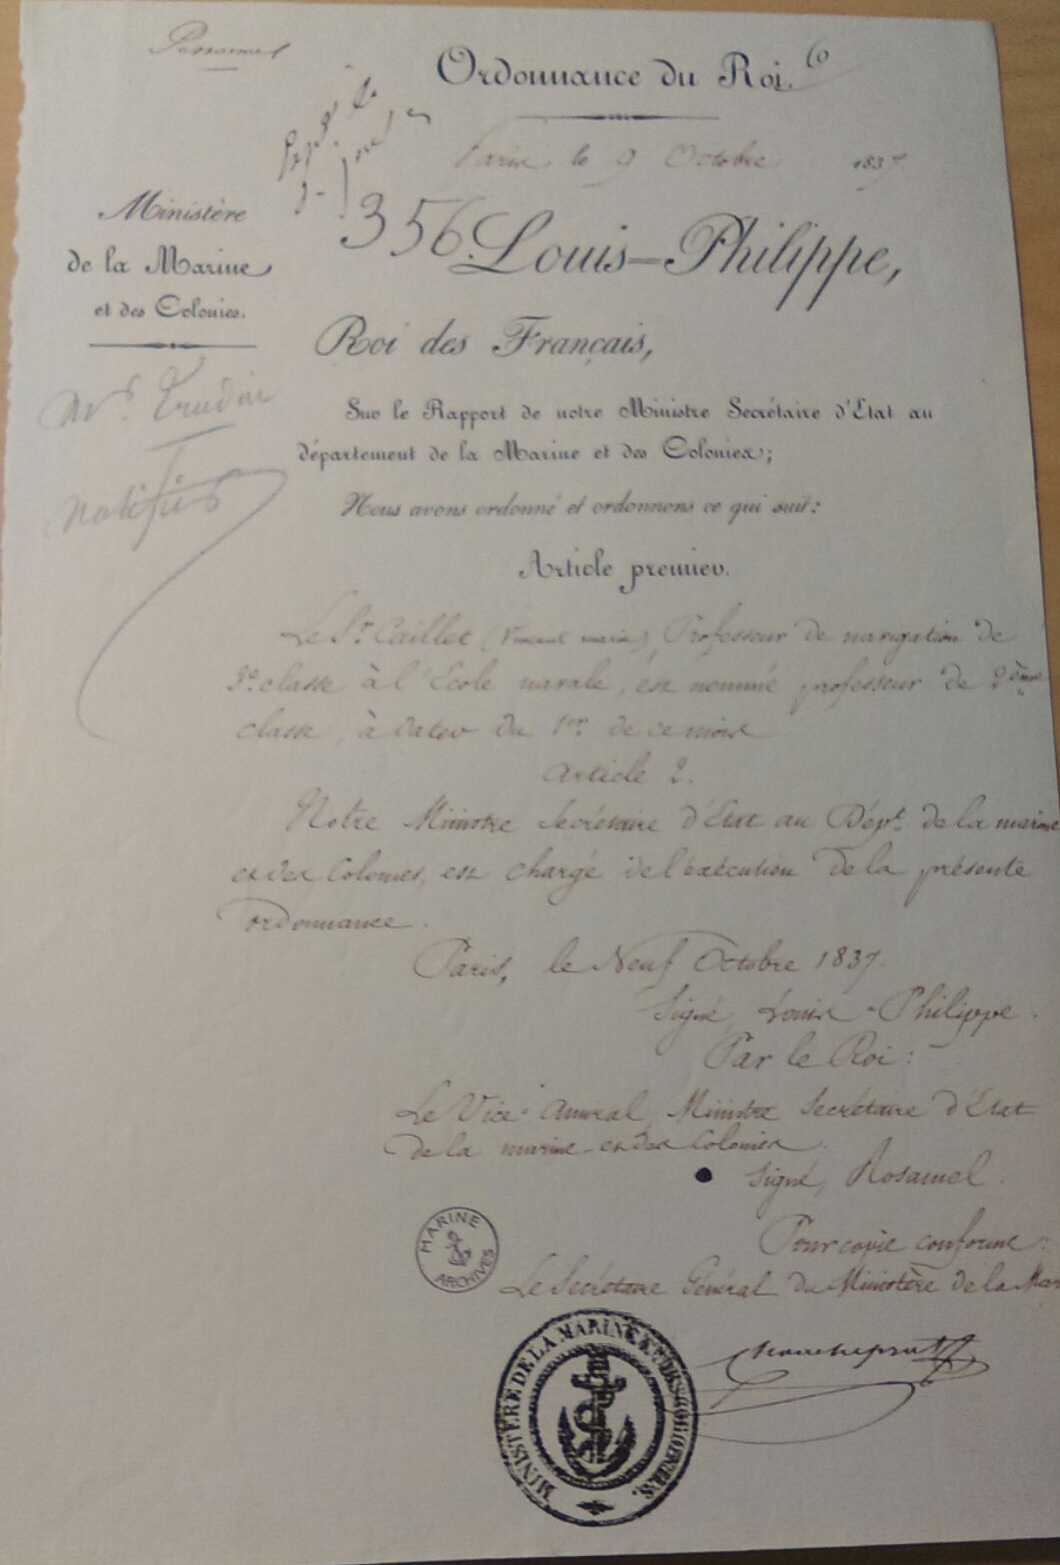 Personnel
Ordonnance du Roi.
6
Paris le 9 Octobre 1837
Ministère
de la Marine
et des Colonies.
356.
Louis-Philippe,
Roi des Français,
Mr.
notifiés
Sur le Rapport de notre Ministre Secrétaire d'Etat au
département de la Marine et des Colonies;
Nous avons ordonné et ordonnons ce qui suit:
Article premier.
Le Sr. Caillet (Vincent marie), Professeur de navigation de
3e. classe à l'Ecole navale, est nommé professeur de 2ème
classe, à dater du 1er. de ce mois
Article 2.
Notre Ministre Secrétaire d'Etat au Dépt. de la marine
et des Colonies, est chargé de l'exécution de la présente
ordonnance.
Paris, le Neuf Octobre 1837.
Signé, Louis-Philippe.
Par le Roi:
Le Vice-Amiral, Ministre Secrétaire d'Etat
de la marine et des Colonies.
Signé, Rosamel.
Pour copie conforme:
Le Secrétaire Général du Ministère de la Mar
MARINE
ARCHIVES
MINISTERE DE LA MARINE ET DES COLONIES.